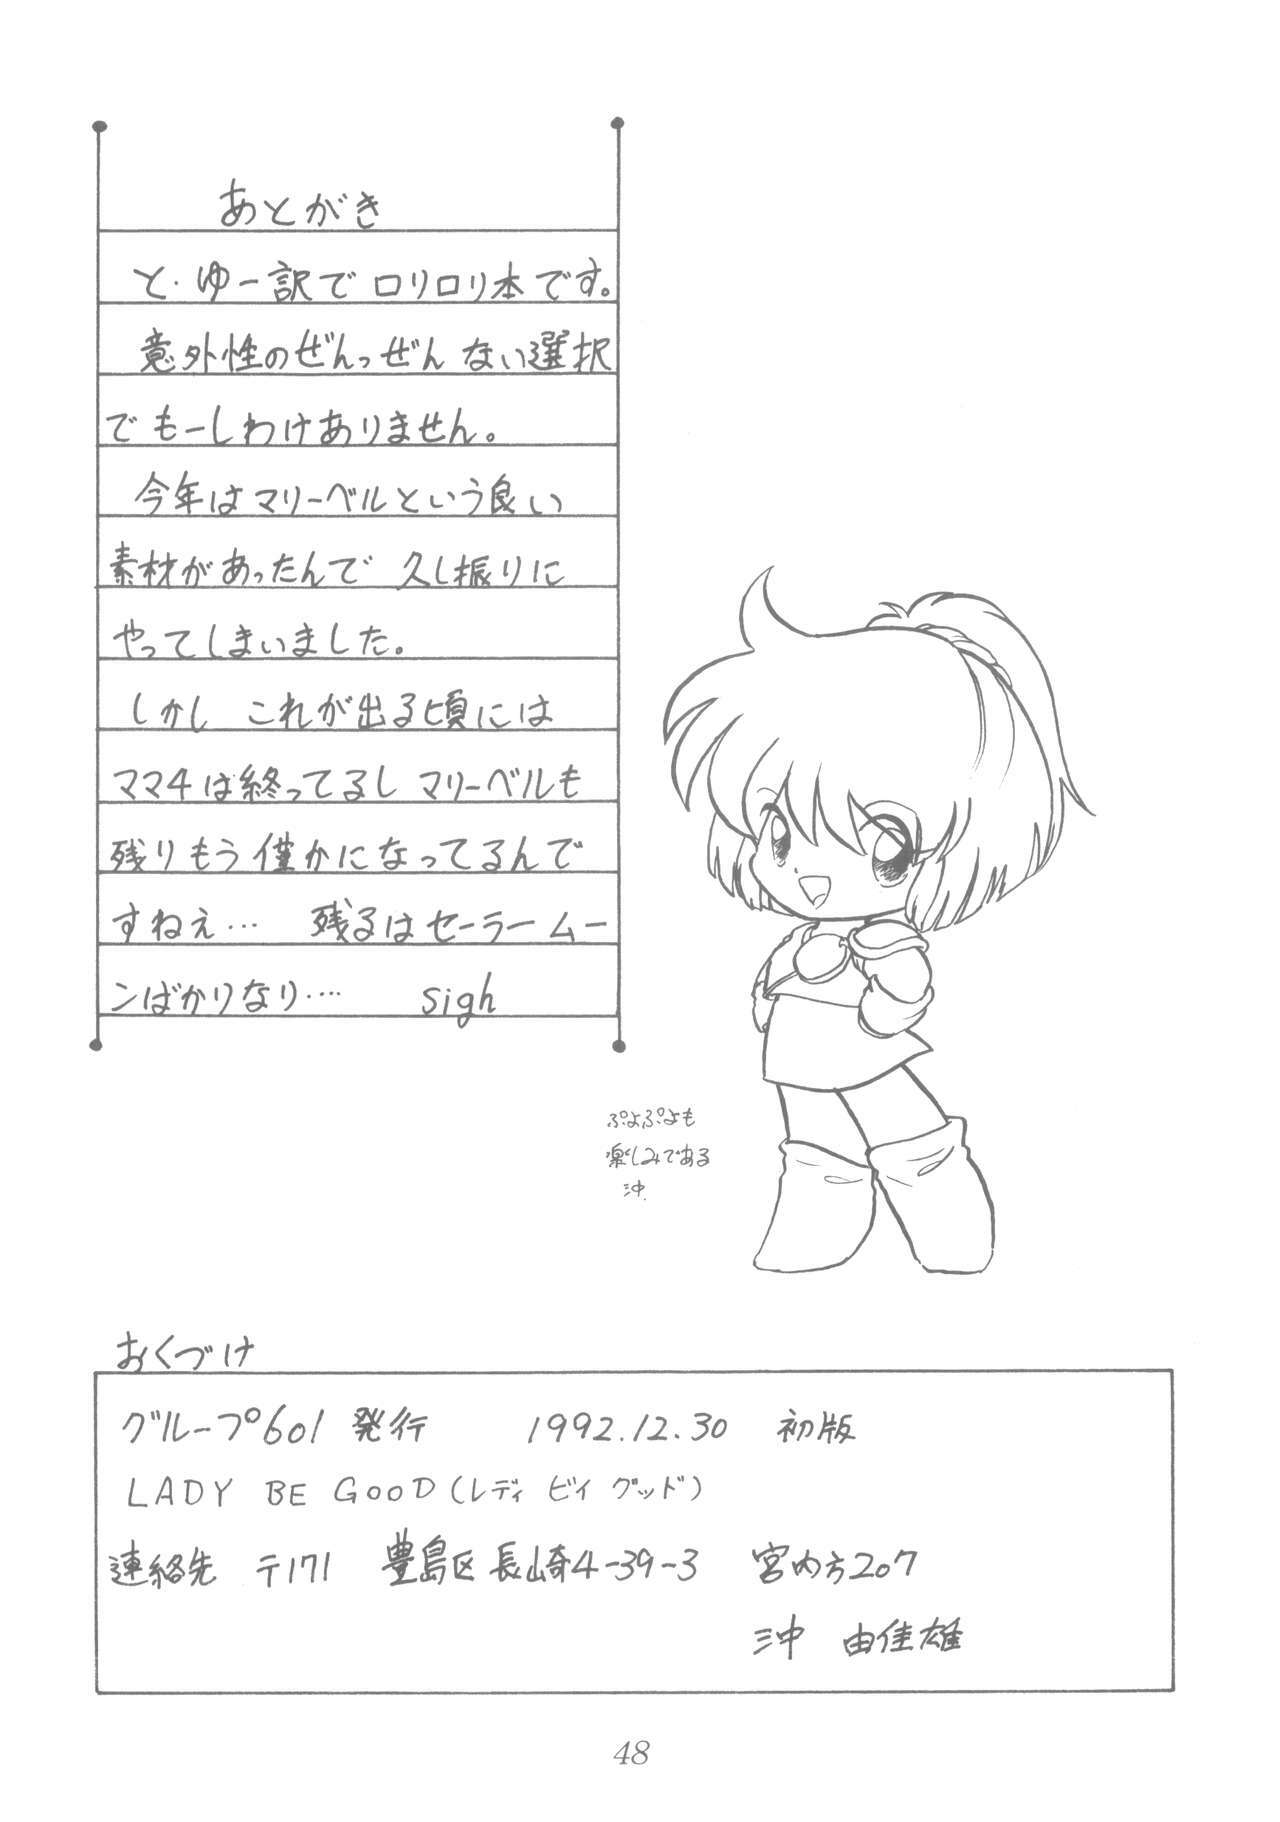 あとがき
と・ゆー訳でロリロリ本です。
意外性のぜんっぜんない選択
でもーしわけありません。
今年はマリーベルという良い
素材があったんで久し振りに
やってしまいました。
しかしこれが出る頃には
ママ4は終ってるしマリーベルも
残りもう僅かになってるんで
すねえ… 残るはセーラームー
ンばかりなり‥‥ sigh
ぷよぷよも
楽しみである
沖.
おくづけ
グループ601 発行 1992.12.30 初版
LADY BE GOOD(レディ ビィ グッド)
連絡先 〒171 豊島区長崎4-39-3 宮内方207
沖 由佳雄
48